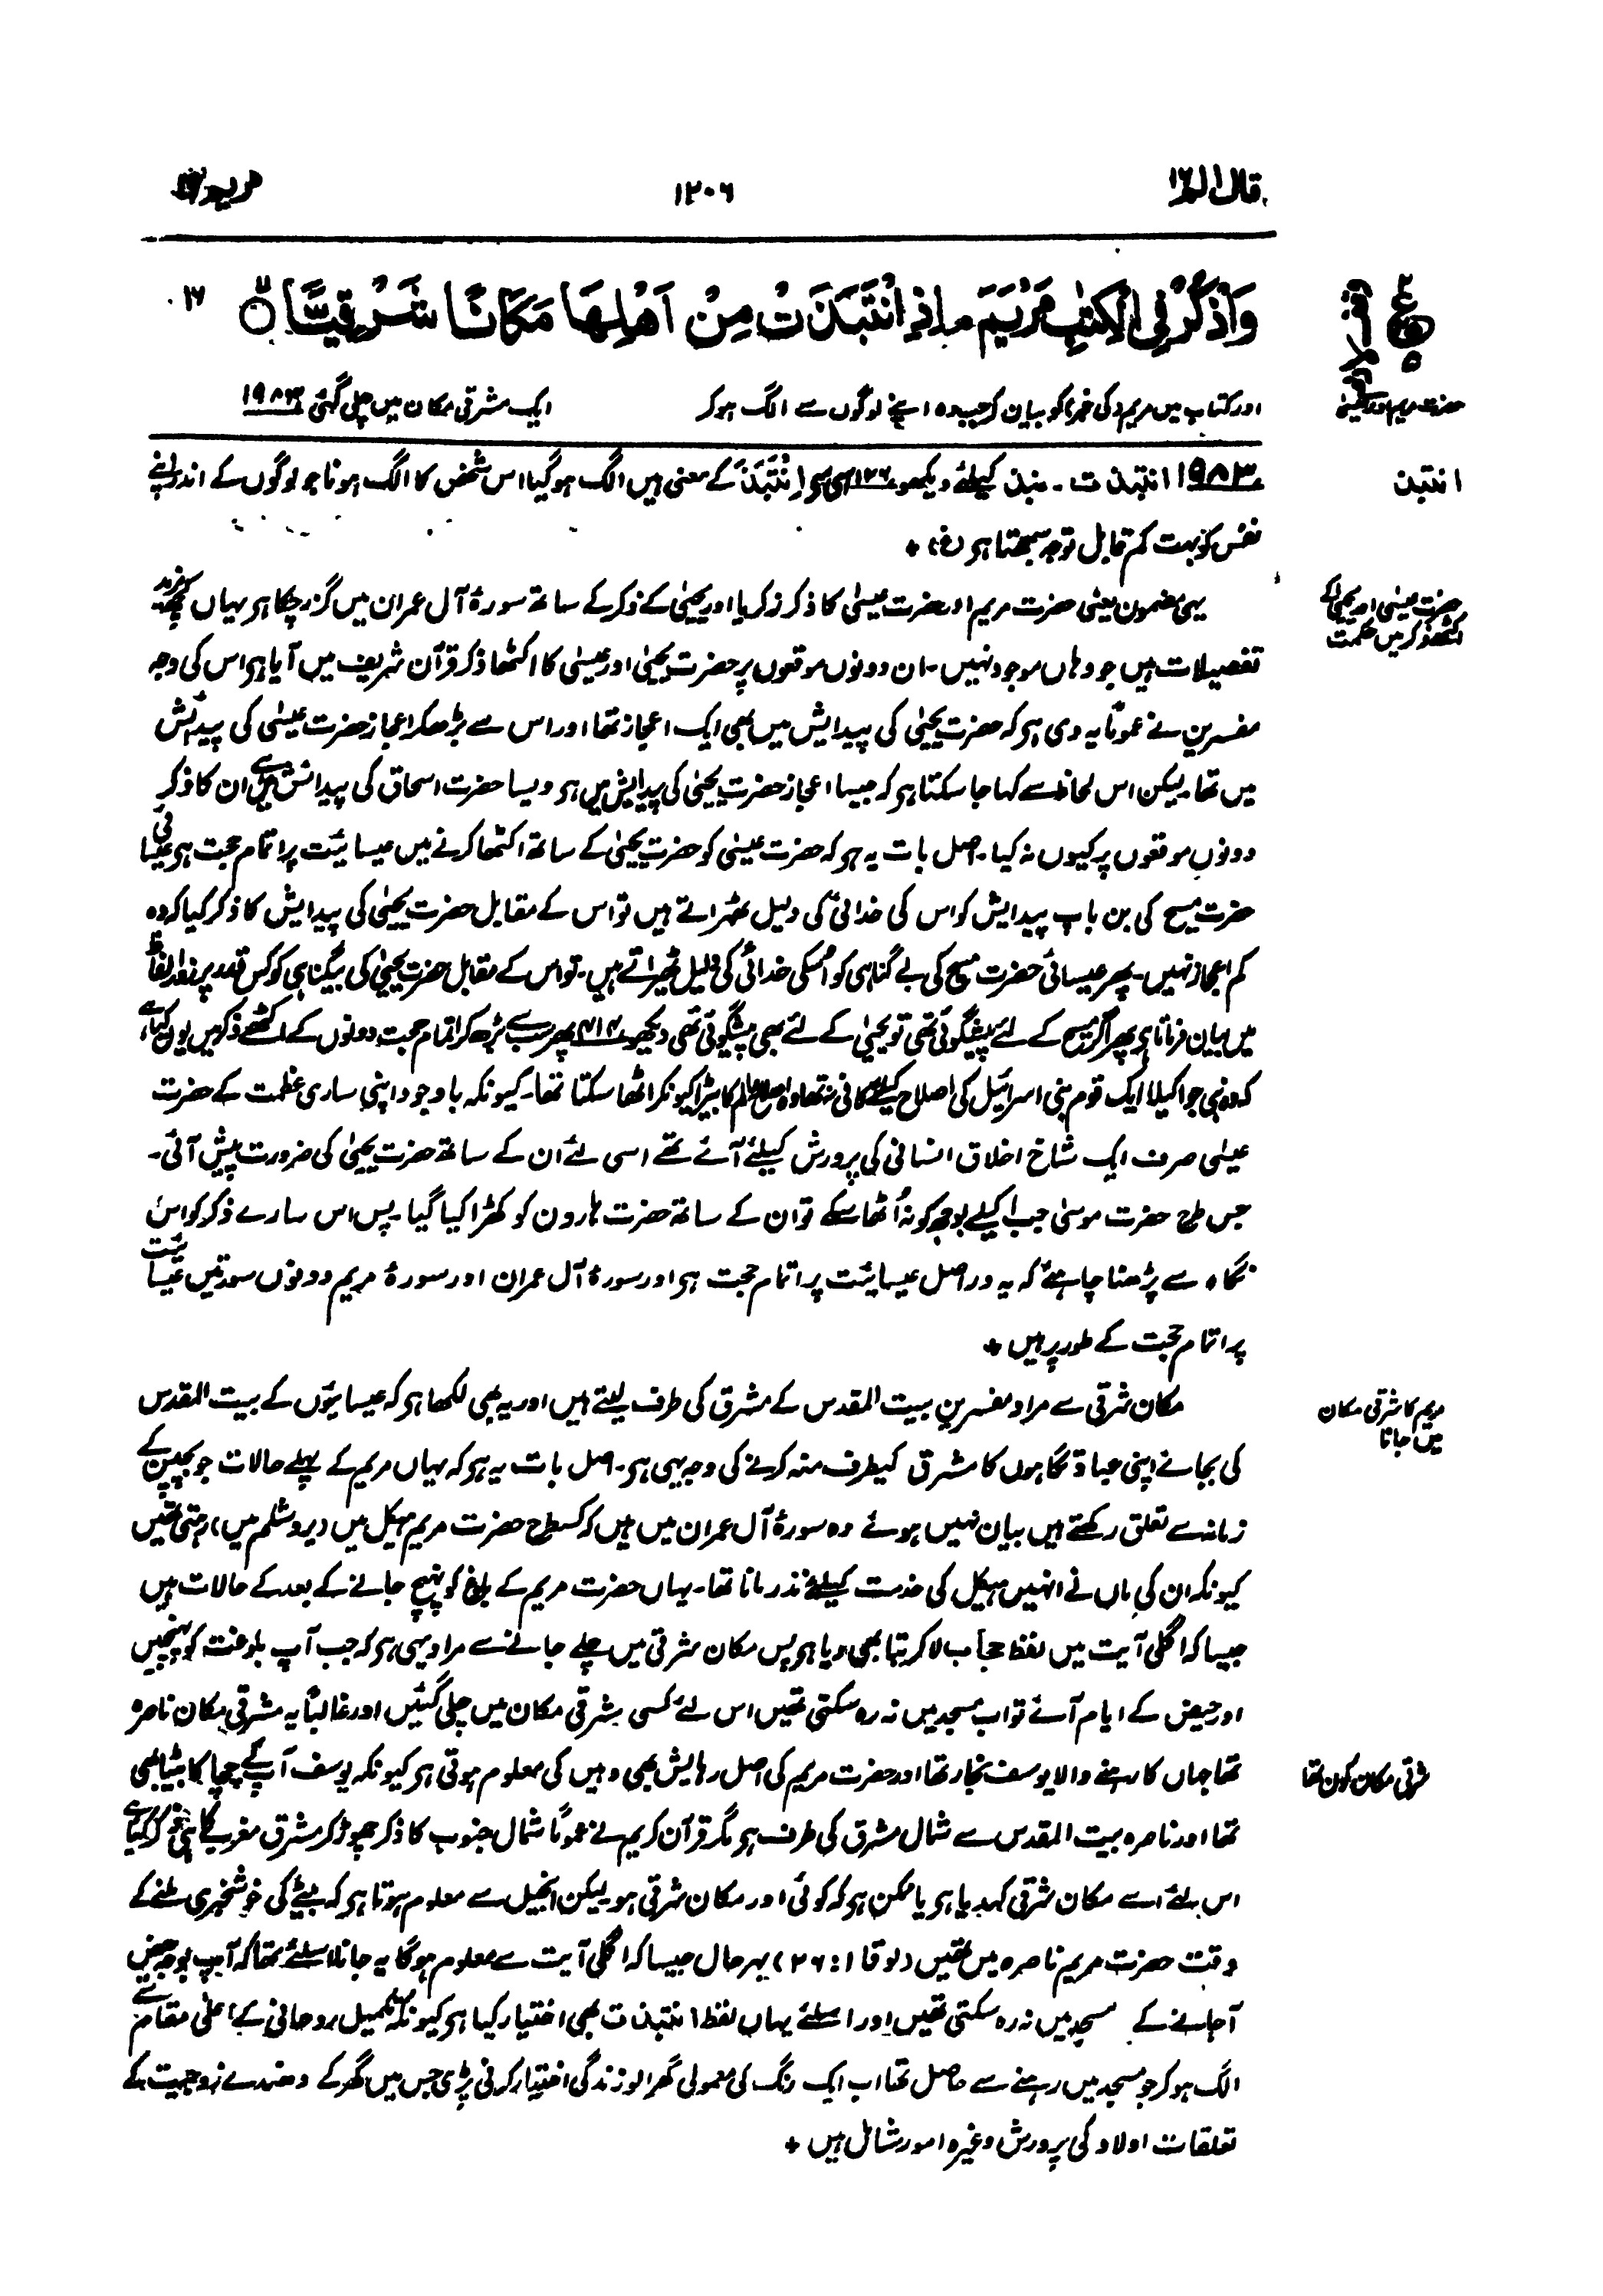 قال الم ١٦
١٢٠٦
مریم ١٩
وَاذْكُرْ فِی الْكِتٰبِ مَرْیَمَ ۘ اِذِ انْتَبَذَتْ مِنْ اَهْلِهَا مَكَانًا شَرْقِیًّا ۙ
١٦
اور کتاب میں مریم (کی خبر) کو بیان کر جب وہ اپنے لوگوں سے الگ ہو کر ایک مشرقی مکان میں چلی گئی ١٩٨٣
حضرت مریم اور عیسیٰ
١٩٨٣ انتبذت۔ منبذ کیلئے دیکھو ١٢٦ اسی سے اِنْتَبَذَ کے معنی ہیں الگ ہو گیا اس شخص کا الگ ہونا جو لوگوں کے اندر اپنے
انتبذ
نفس کو بہت کم قابل توجہ سمجھتا ہو (غ) +
یہی مضمون یعنی حضرت مریم اور حضرت عیسیٰ کا ذکر زکریا اور یحییٰ کے ذکر کے ساتھ سورۂ آل عمران میں گزر چکا ہو یہاں کچھ مزید
حضرت عیسیٰ اور یحییٰ کے
اکٹھے ذکر میں حکمت
تفصیلات ہیں جو وہاں موجود نہیں۔ ان دونوں موقعوں پر حضرت یحییٰ اور عیسیٰ کا اکٹھا ذکر قرآن شریف میں آیا ہو اس کی وجہ
مفسرین نے عموماً یہ دی ہو کہ حضرت یحییٰ کی پیدایش میں بھی ایک اعجاز تھا اور اس سے بڑھکر اعجاز حضرت عیسیٰ کی پیدائش
میں تھا۔ لیکن اس لحاظ سے کہا جا سکتا ہو کہ جیسا اعجاز حضرت یحییٰ کی پیدایش میں ہو ویسا حضرت اسحاق کی پیدائش میں ہے ان کا ذکر
دونوں موقعوں پر کیوں نہ کیا۔ اصل بات یہ ہو کہ حضرت عیسیٰ کو حضرت یحییٰ کے ساتھ اکٹھا کرنے میں عیسائیت پر اتمام حجت ہو عیسائی
حضرت مسیح کی بن باپ پیدایش کو اس کی خدائی کی دلیل ٹھہراتے ہیں تو اس کے مقابل حضرت یحییٰ کی پیدایش کا ذکر کیا کہ وہ
کم اعجاز نہیں۔ پھر عیسائی حضرت مسیح کی بے گناہی کو اسکی خدائی کی دلیل ٹھیراتے ہیں۔ تو اس کے مقابل حضرت یحییٰ کی بیگناہی کو کس قدر پر زور الفاظ
میں بیان فرماتا ہو پھر اگر مسیح کے لئے پیشگوئی تھی تو یحییٰ کے لئے بھی پیشگوئی تھی دیکھو ٤١٢ پھر سب سے بڑھکر اتمام حجت دونوں کے اکٹھے ذکر میں یوں کیا ہے
کہ وہ نبی جو اکیلا ایک قوم بنی اسرائیل کی اصلاح کیلئے کافی نہ تھا وہ اصلاح عالم کا بیڑا کیونکر اٹھا سکتا تھا۔ کیونکہ باوجود اپنی ساری عظمت کے حضرت
عیسٰی صرف ایک شاخ اخلاق انسانی کی پرورش کیلئے آئے تھے اسی لئے ان کے ساتھ حضرت یحییٰ کی ضرورت پیش آئی۔
جس طرح حضرت موسیٰ جب اکیلے بوجھ کو نہ اُٹھا سکے تو ان کے ساتھ حضرت ہارون کو کھڑا کیا گیا۔ پس اس سارے ذکر کو اس
نگاہ سے پڑھنا چاہئے کہ یہ در اصل عیسائیت پر اتمام حجت ہو اور سورۂ آل عمران اور سورۂ مریم دونوں سورتیں عیسائیت
پر اتمام حجت کے طور پر ہیں +
مکان شرقی سے مراد مفسرین بیت المقدس کے مشرق کی طرف لیتے ہیں اور یہ بھی لکھا ہو کہ عیسائیوں کے بیت المقدس
مریم کا شرقی مکان
میں جانا
کی بجائے اپنی عبادتگاہوں کا مشرق کیطرف منہ کرنے کی وجہ یہی ہو۔ اصل بات یہ ہو کہ یہاں مریم کے پہلے حالات جو بچپن کے
زمانہ سے تعلق رکھتے ہیں بیان نہیں ہوئے وہ سورۂ آل عمران میں ہیں کہ کسطرح حضرت مریم ہیکل میں (یروشلم میں) رہتی تھیں
کیونکہ ان کی ماں نے انہیں ہیکل کی خدمت کیلئے نذر مانا تھا۔ یہاں حضرت مریم کے بلوغ کو پہنچ جانے کے بعد کے حالات ہیں
جیسا کہ اگلی آیت میں لفظ حجاب لا کر بتا بھی دیا ہو پس مکان شرقی میں چلے جانے سے مراد یہی ہو کہ جب آپ بلوغت کو پہنچیں
اور حیض کے ایام آئے تو اب مسجد میں نہ رہ سکتی تھیں اس لئے کسی شرقی مکان میں چلی گئیں اور غالباً یہ مشرقی مکان ناصرہ
تھا جہاں کا رہنے والا یوسف نجار تھا اور حضرت مریم کی اصل رہایش بھی وہیں کی معلوم ہوتی ہو کیونکہ یوسف آپ کے چچا کا بیٹا بھی
شرقی مکان کون تھا
تھا اور ناصرہ بیت المقدس سے شمال مشرق کی طرف ہو مگر قرآن کریم نے عموماً شمال جنوب کا ذکر چھوڑ کر مشرق مغرب کا ہی ذکر کیا ہے
اس لئے اسے مکان شرقی کہدیا ہو یا ممکن ہو کہ کوئی اور مکان شرقی ہو۔ لیکن انجیل سے معلوم ہوتا ہو کہ بیٹے کی خوشخبری ملنے کے
وقت حضرت مریم ناصرہ میں تھیں (لوقا ١: ٢٦) بہر حال جیسا کہ اگلی آیت سے معلوم ہو گا یہ جانا اسلئے تھا کہ آپ بوجہ حیض
آجانے کے مسجد میں نہ رہ سکتی تھیں اور اسلئے یہاں لفظ انتبذت بھی اختیار کیا ہو کیونکہ تکمیل روحانی کے اعلٰی مقام سے
الگ ہو کر جو مسجد میں رہنے سے حاصل تھا اب ایک رنگ کی معمولی گھرالو زندگی اختیار کرنی پڑی جس میں گھر کے دھندے زوجیت کے
تعلقات اولاد کی پرورش وغیرہ امور شامل ہیں +